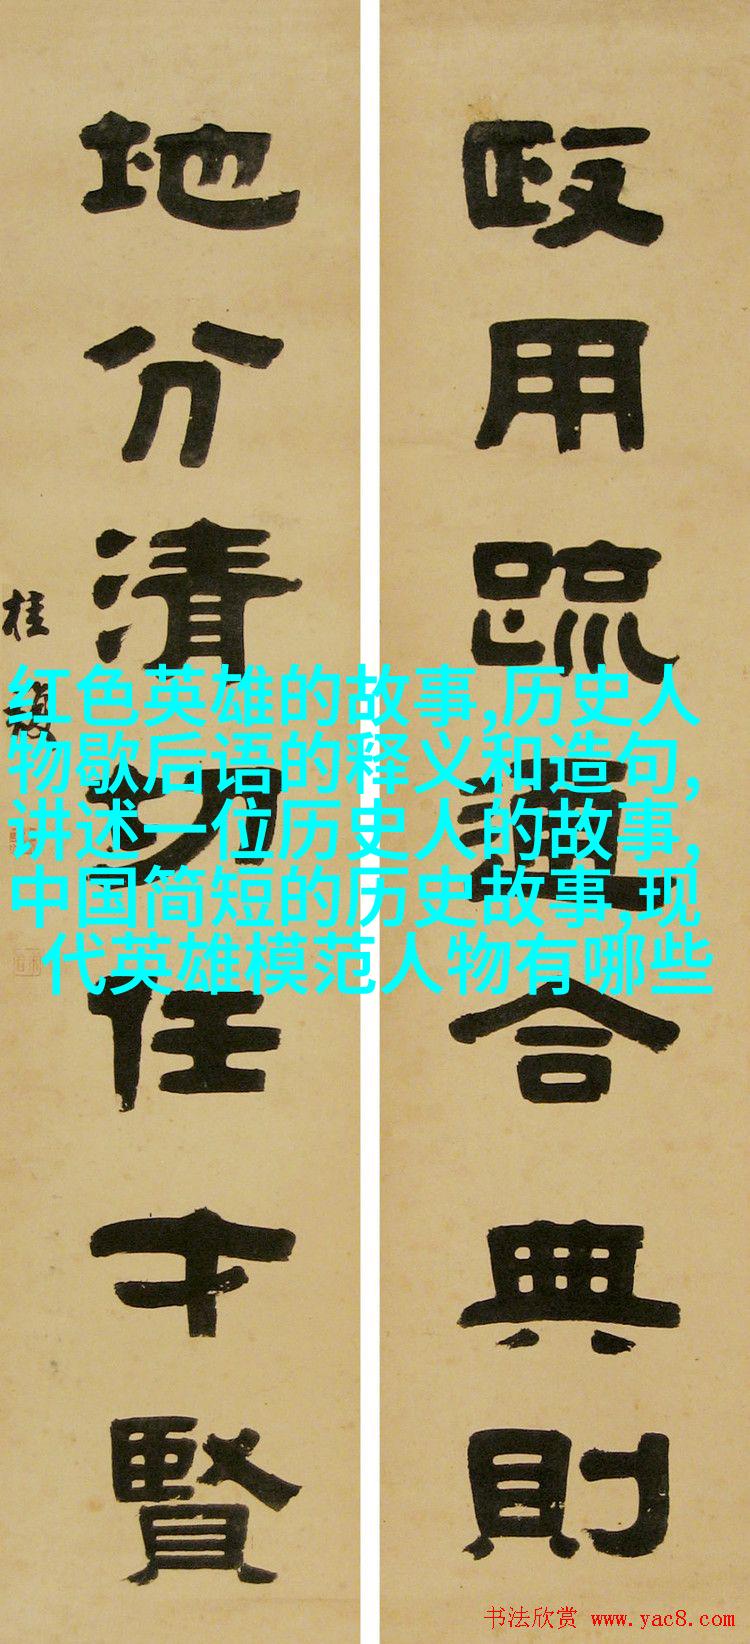 政用疏通合典則
地分清切任才賢
桂馥
红色英雄的故事,历史人
物歇后语的释义和造句,
讲述一位历史人的故事,
中国简短的历史故事,现
代英雄模范人物有哪些
书法欣赏 www.yac8.com